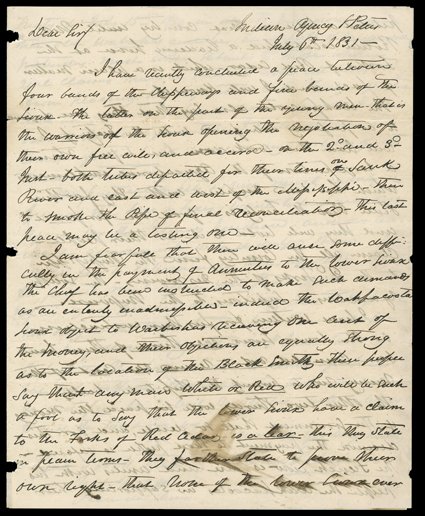 Dear Sir/ Indian Agency St Peters
July 6th 1831 —
I have recently concluded a peace between
four bands of the Chippeways and five bands of the
Sioux. The latter on the part of the young men - that is
the warriors of the Sioux opening the negotiation of
their own free will and accord - on the 2d and 3d
Inst - both tribes departed for their lines on Sauk
River and east and west of the Mississippi - there
to smoke the Pipe of final reconciliation - this last
peace may be a lasting one
I am fearful that there will arise some diffi-
culty in the payment of Annuities to the lower Sioux
the Chief has been instructed to make such demands
as are entirely inadmissible indeed the Wahpacoota
Sioux object to Wabashas receiving one cent of
the money, and their objections are equally strong
as to the location of the Black Smith - these people
say that any man White or Red who will be such
a fool as to say that the lower Sioux have a claim
to the Forks of Red Cedar is a liar - this they state
in plain terms - They further State to prove their
own right - that none of the lower Sioux ever